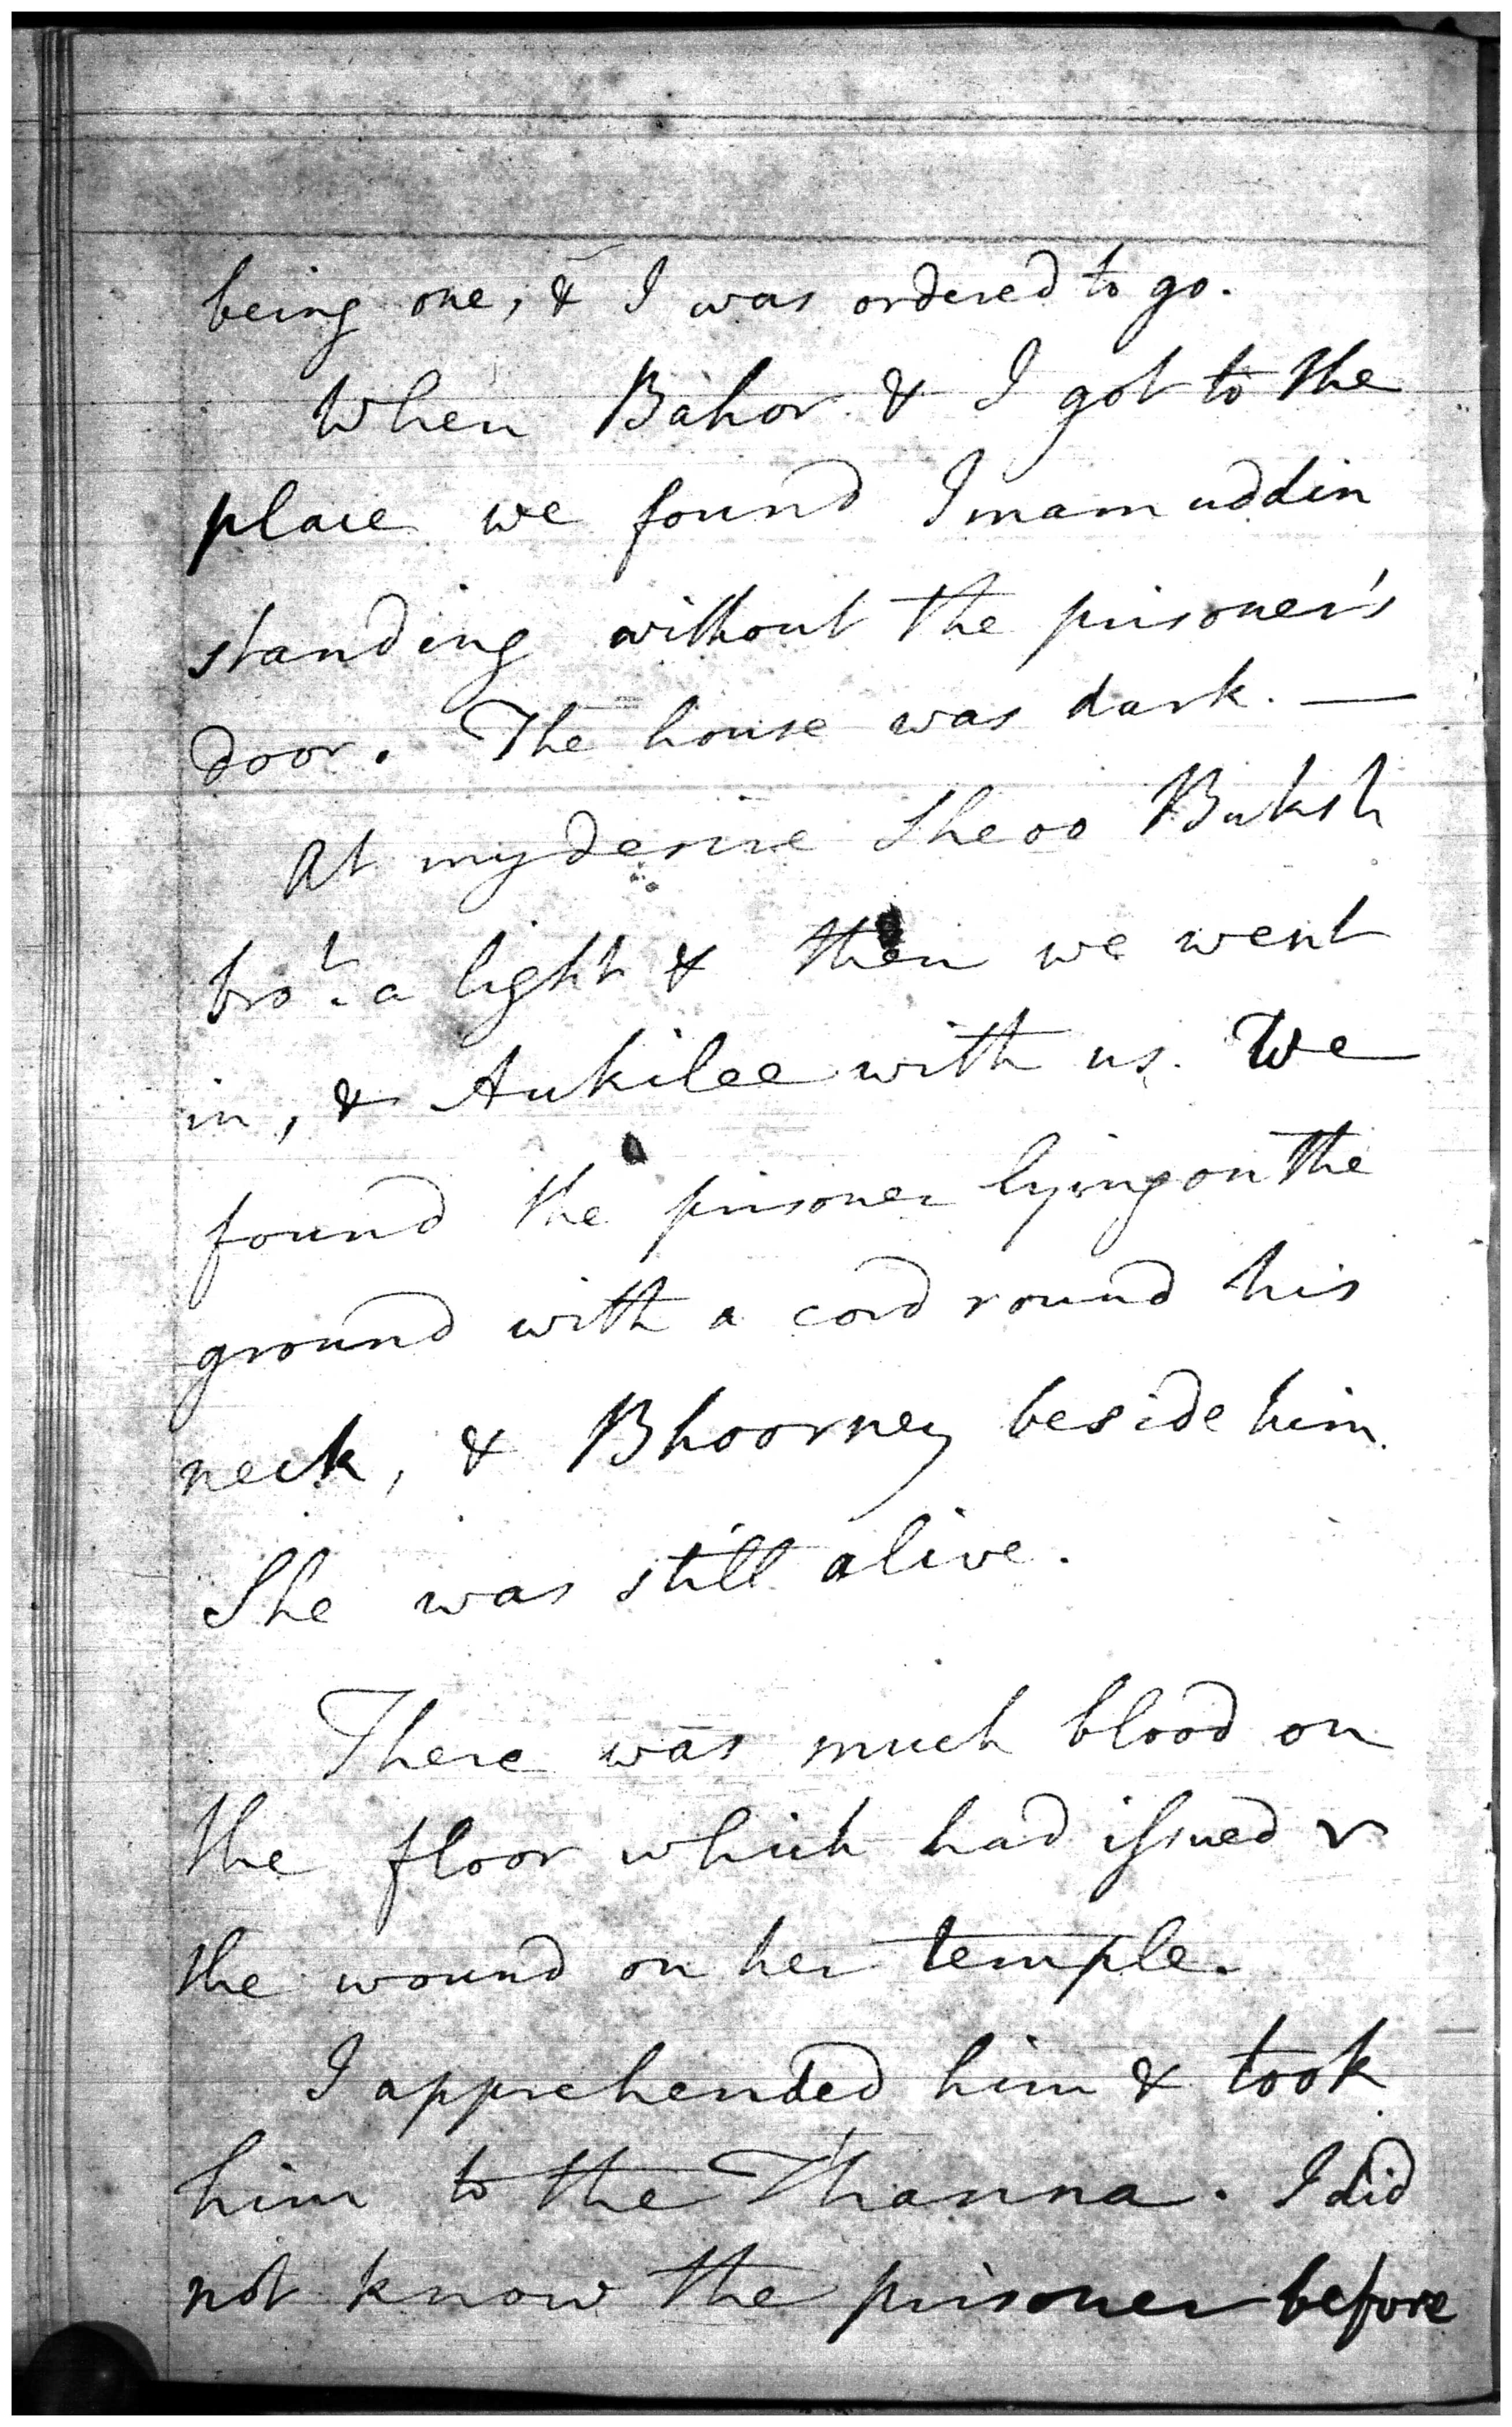 being one, & I was ordered to go.
When Bahor & I got to the
place we found Imamuddin
standing without the prisoner's
door. The house was dark. —
At my desire Sheoo Buksh
bro.t a light & then we went
in, & Aukilee with us. We
found the prisoner lying on the
ground with a cord round his
neck, & Bhoorney beside him.
She was still alive.
There was much blood on
the floor which had issued
the wound on her temple.
I apprehended him & took
him to the Thanna. I did
not know the prisoner before